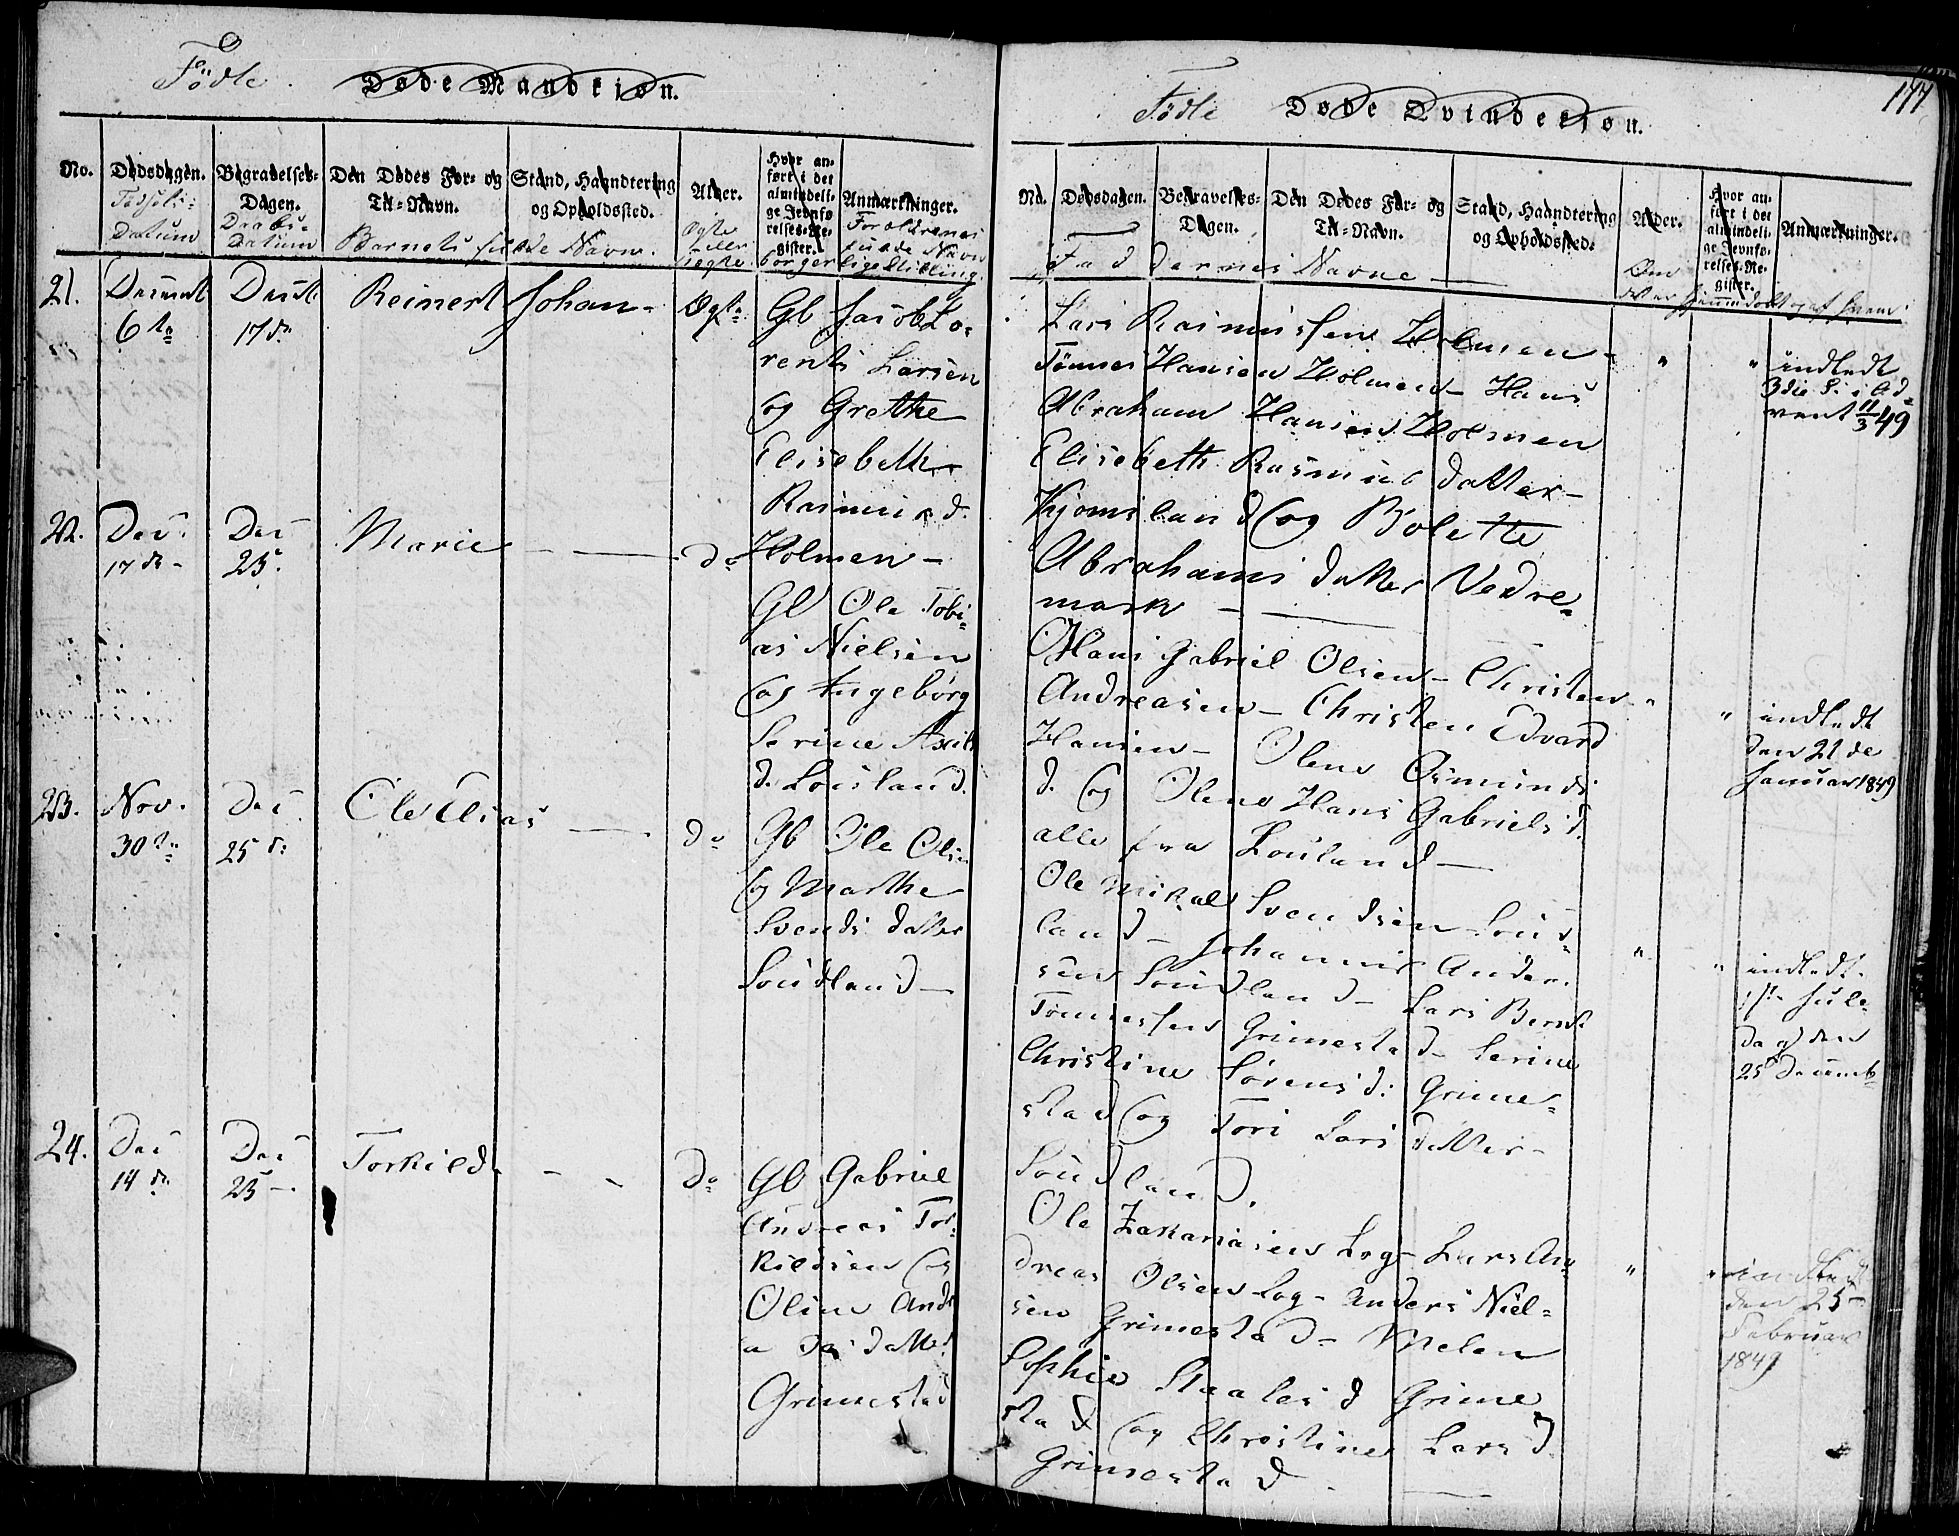 Födte. Døde Mandkiøn.
No. Dødsdagen. Begravelses-Dagen. Den Dødes For- og Til-Navn. Stand, Haandtering og Opholdssted. Alder. Hvor anført i det almindelige Jevnførelses-Register. Anmærkninger.
Datum
Daabs-
Datum
Barnets fulde Navn.
Ægte eller uegte
Forældrenes fulde Navn
borgerlige Stilling.
21. Decembr 6te
17de
Reinert Johan -
Ægte
Gb Jacob Lo-
rents Larsen
og Grethe
Elisebeth
Rasmusd.
Holmen -
22. Dec. 17de -
Dec 25.
Marie
do
Gb Ole Tobi-
as Nielsen
og Ingebørg
Serine
d. Louland.
23. Nov. 30te
Dec 25de
Ole Elias
do
Gb Ole Olsen
og Marthe
Svends datter
Loudland -
24. Dec 14de
Dec 25 -
Torkild
do
Gb Gabriel
Andreas Tor-
kildsen og
Oline
datter
Grimestad
Födte Døde Qvindekiøn.
177
No. Dødsdagen. Begravelses-Dagen. Den Dødes For- og Til-Navn. Stand, Haandtering og Opholdssted. Alder. Hvor anført i det almindelige Jevnførelses-Register. Anmærkninger.
Faddernes Navne
Om det er hjemmedøbt og af hvem
Lars Rasmussen Holmen -
Tønnes Hansen Holmen - Hans
Abraham Hansen Holmen
Elisebeth Rasmusdatter -
Kjomsland og Bolette
Abrahams datter Vedre-
mark -
" " indledt
3die S. i Ad-
vent 11/3 49
Hans Gabriel Olsen - Christen
Andreasen - Christen Edvard
Hansen - Olene Osmunds
d. og Olene Hans Gabriels d.
alle fra Louland -
" " indledt
den 21de
Januar 1849
Ole Mikal Svendsen Loud-
land - Johannes Ander-
sen Loudland - Lars Bernt
Tønnessen Grimestad - Serine
Christine Sørensd. Grime-
stad og Tori Lars datter -
Loudland.
" " indledt
1ste Jule-
dag den
25 Decemb
Ole Zakariasen Log - Lars An-
dreas Olsen Log - Anders Niel-
sen Grimestad - Helen
Sophie Staalesd Grime
stad og Christine Lars d.
Grimestad -
" " indledt
den 25
Februar
1849